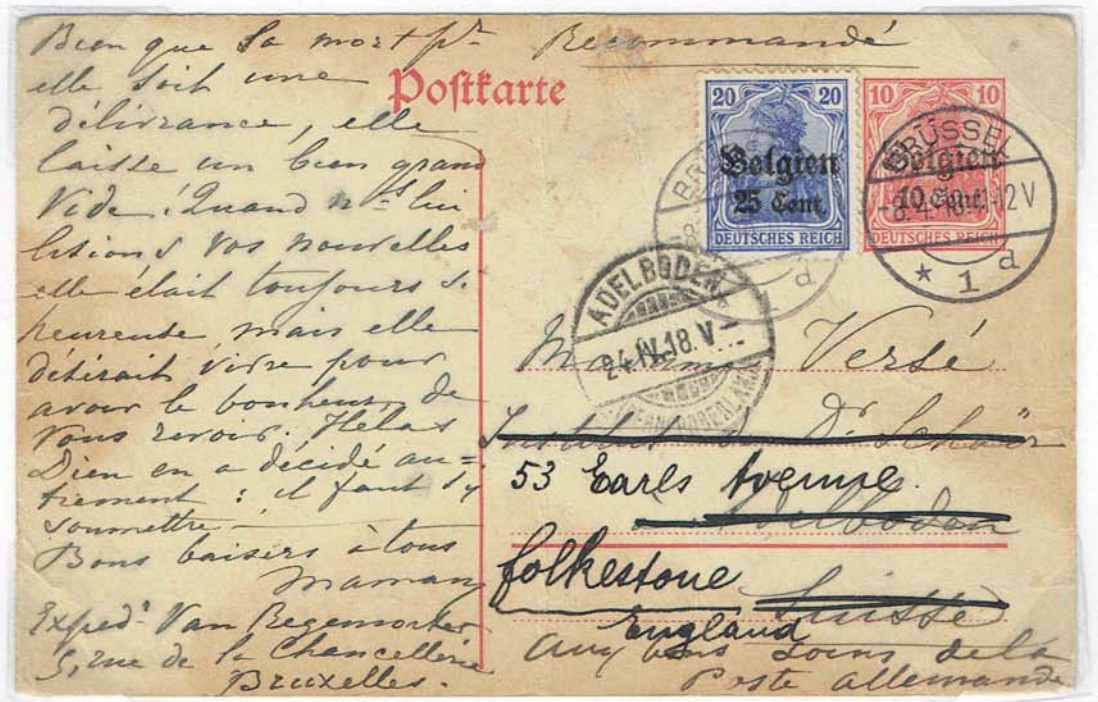 Bien que sa mort pr
elle soit une
délivrance, elle
laisse un bien grand
Vide. Quand ns lui
lisions vos nouvelles
elle était toujours si
heureuse mais elle
désirait vivre pour
avoir le bonheur de
vous revoir. Hélas
Dieu en a décidé au=
trement : il faut s'y
soumettre.
Bons baisers à tous
Maman
Expedr Van Regemorter
5, rue de la Chancellerie
Bruxelles.
Recommandé
Postkarte
20 20
Belgien
25 Cent.
DEUTSCHES REICH
10 10
Belgien
10 Cent.
DEUTSCHES REICH
BRÜSSEL
-8.4.18.11-12V
* 1 d
d
ADELBODEN
24.IV.18.V-
Versé
Institut Dr Schaär
53 Earls Avenue.
Adelboden
folkestone
Suisse
England
Aux bons soins de la
Poste allemande